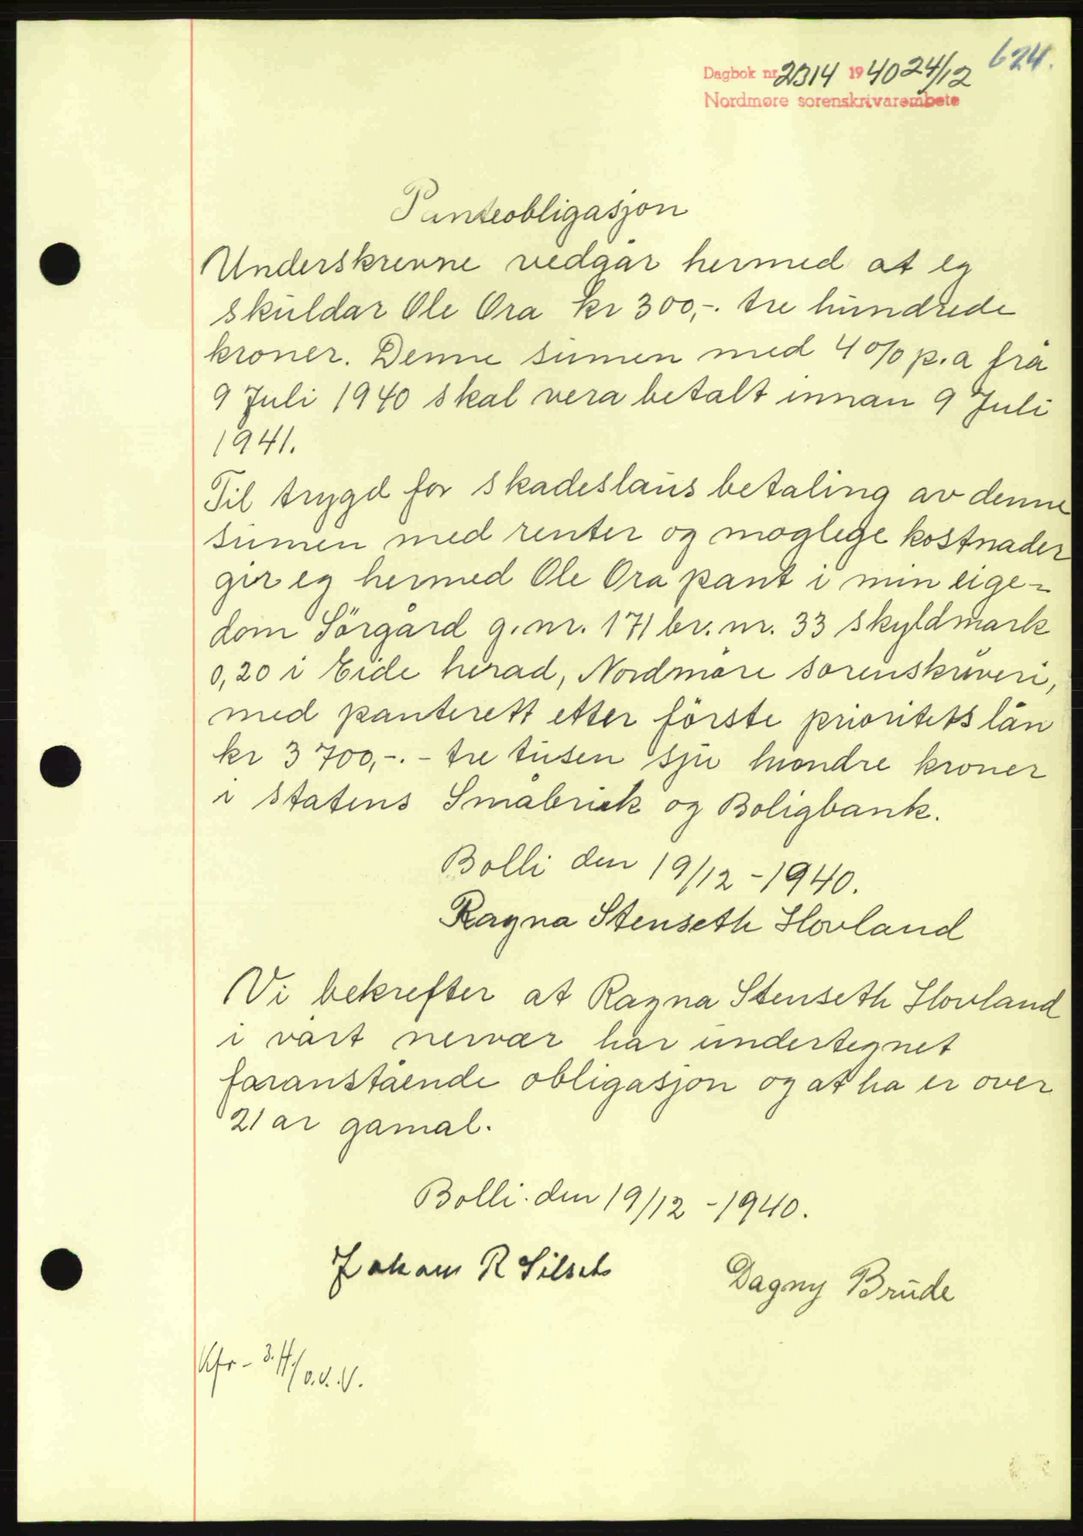 624.
Dagbok nr. 2314 1940 24/12
Nordmøre sorenskrivarembete
Panteobligasjon
Underskrevne vedgår hermed at eg
skuldar Ole Ora kr 300,-. tre hundrede
kroner. Denne sumen med 4% p.a frå
9 Juli 1940 skal vera betalt innan 9 Juli
1941.
Til trygd for skadeslaus betaling av denne
sumen med renter og moglege kostnader
gir eg hermed Ole Ora pant i min eige=
dom Sörgård g.nr. 171 br.nr. 33 skyldmark
0,20 i Eide herad, Nordmöre sorenskriveri,
med panterett etter förste prioritets lån
kr 3700,-. - tre tusen sju hundre kroner
i statens Småbruk og Boligbank.
Bolli den 19/12 -1940.
Ragna Stenseth Hovland
Vi bekrefter at Ragna Stenseth Hovland
i vårt nervær har undertegnet
faranstående obligasjon og at ha er over
21 år gamal.
Bolli den 19/12 -1940.
R Silseth Dagny Brude
Kfr -